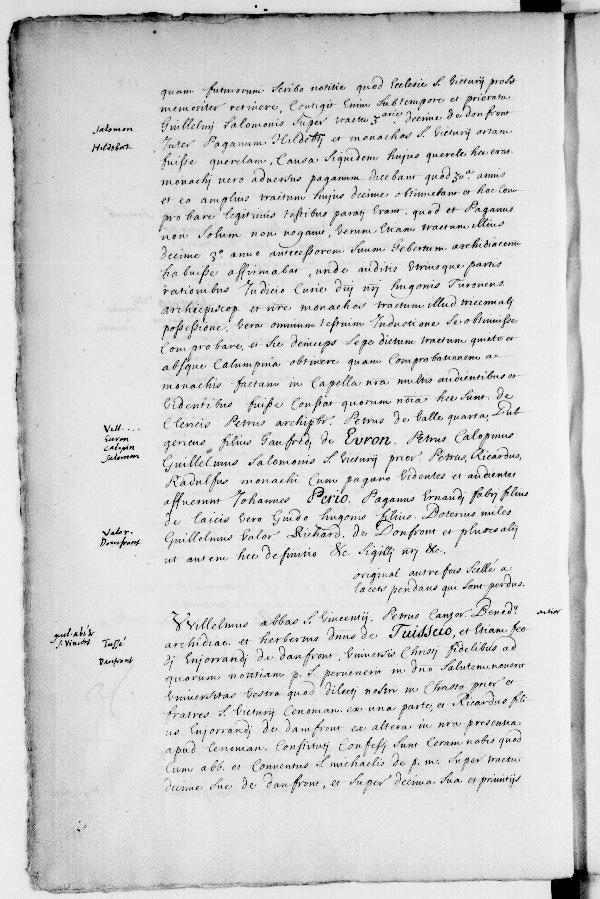 quam futurorum scribo notitie quod Ecclesie S. Victurij prosit
memoriter retinere, Contigit Enim Sub tempore et prioratu
Guillelmj Salomonis Super tractu decime de donfront
Salomon
Inter Paganum Hildebtj et monachos S. Victurij ortam
Hildebert
fuisse querelam, Causa Siquidem hujus querele hec erat
monachj vero adversus paganum dicebant quod 30.a annis
et eo amplius tractum hujus decime obtinuerant et hoc Com
probare legitimis testibus paratj Erant. quod et Paganus
non Solum non negavit, Verum Etiam tractum illius
decime 3.o anno antecessorem Suum Gebertum archidiaconu
habuisse affirmabat, unde auditis Utriusque partis
rationibus Judicio Curie dnj nrj hugonis Turonens
archiepiscop et rire monachos tractum illud tricennalj
possessione, Vera omnium testium Inductione Se obtinuisse
Comprobare, et Sic deinceps Sepe dictum tractum quiete et
absque Calumpnia obtinere quam Comprobationem a
monachis factam in Capella nra multis audientibus et
Videntibus fuisse Constat quorum noia hec Sunt. de
Clericis Petrus archipbr. Petrus de Valle quarta, Dub
Vall....
gericus filius Gaufrid, de Evron. Petrus Calopinus
Evron
Calopin
Guillelmus Salomonis S. Victurij prior, Petrus, Ricardus,
Salomon
Radulfus monachi Cum pagano Videntes et audientes
affuerunt Johannes Perio. Paganus Ernandj fabrj filius
de laicis Vero Guido hugonis filius. Doterius miles
Guillelmus Valor. Richard. de Donfront et plures alij
Valor.
Domfront
ut autem hec definitio &c. Sigillj nrj &c.
original autrefois Scellé a
lacets pendans qui Sont perdus.
Willelmus abbas S. Vincentij, Petrus Cantor, Bened.
archidiac. et herbertus dnus de Tuisseio, et Etiam feo
guil. abé de
S. Vincent
Tuffé
dj Enjorrandj de danfront, Universis Christj fidelibus ad
Danfront
quorum notitiam p. s. pervenerit in dno Salutem, noverit
Universitas Vestra quod dilectj nostri in Christo prior et
fratres S. Victurij Cenoman. ex una parte, et Ricardus fili
us Enjorrandj de danfront ex altera in nra presentia
apud Cenoman. Constitutj Confessj Sunt Coram nobis quod
Cum abb. et Conventus S. michaelis de p. m. Super tractu
decime Sue de danfront, et Super decima Sua et primitijs